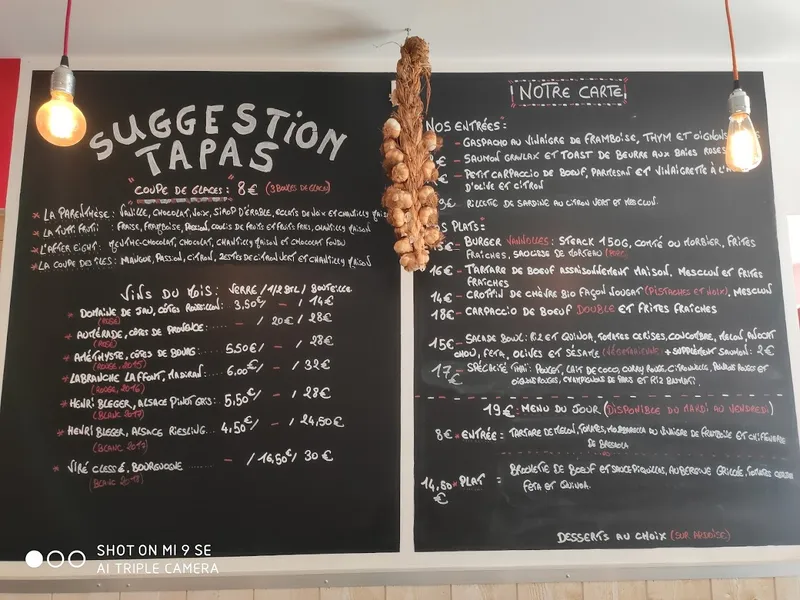 SUGGESTION
TAPAS
"COUPE DE GLACES": 8€ (3 BOULES DE GLACES)
* LA PARENTHÈSE: VANILLE, CHOCOLAT, NOIX, SIROP D'ÉRABLE, ECLATS DE NOIX ET CHANTILLY MAISON
* LA TUTTI FRUTTI: FRAISE, FRAMBOISE, PASSION, COULIS DE FRUITS ET FRUITS FRAIS, CHANTILLY MAISON
* L'AFTER EIGHT: MENTHE-CHOCOLAT, CHOCOLAT, CHANTILLY MAISON ET CHOCOLAT FONDU
* LA COUPE DES ILES: MANGUE, PASSION, CITRON, ZESTES DE CITRON VERT ET CHANTILLY MAISON
VINS DU MOIS: VERRE / 1/2 BTL / BOUTEILLE
* DOMAINE DE JAU, CÔTES ROUSSILLON: 3,50€/ - / 14€
(ROSÉ)
* AUMÉRADE, CÔTES DE PROVENCE: - / 20€ / 28€
(ROSÉ)
* AMÉTHYSTE, CÔTES DE BOURG: 5,50€/ - / 28€
(ROUGE, 2015)
* LABRANCHE LAFFONT, MADIRAN: 6,00€/ - / 32€
(ROUGE, 2016)
* HENRI BLEGER, ALSACE PINOT GRIS: 5,50€/ - / 28€
(BLANC 2017)
* HENRI BLEGER, ALSACE RIESLING... 4,50€/ - / 24,50€
(BLANC 2017)
* VIRÉ CLESSÉ, BOURGOGNE ...... - / 16,50€/ 30€
(BLANC 2017)
! NOTRE CARTE!
NOS ENTRÉES:
- GASPACHO AU VINAIGRE DE FRAMBOISE, THYM ET OIGNONS
€ - SAUMON GRAVLAX ET TOAST DE BEURRE AUX BAIES ROSES
€ - PETIT CARPACCIO DE BOEUF, PARMESAN ET VINAIGRETTE À L'
D'OLIVE ET CITRON
9€ - RILLETTE DE SARDINE AU CITRON VERT ET MESCLUN.
PLATS:
15€ - BURGER VANNOLLES: STEACK 150G, COMTÉ OU MORBIER, FRITES
FRAÎCHES, SAUCISSE DE MORTEAU (PORC)
16€ - TARTARE DE BOEUF ASSAISONNEMENT MAISON, MESCLUN ET FRITES
FRAÎCHES
14€ - CROTTIN DE CHÈVRE BIO FAÇON NOUGAT (PISTACHES ET NOIX), MESCLUN
18€ - CARPACCIO DE BOEUF DOUBLE ET FRITES FRAÎCHES
15€ - SALADE BOWL: RIZ ET QUINOA, TOMATES CERISES, CONCOMBRE, MELON, AVOCAT
CHOU, FETA, OLIVES ET SÉSAME (VÉGÉTARIENNE) + SUPPLÉMENT SAUMON: 2€
17€ - SPÉCIALITÉ THAÏ: POULET, LAIT DE COCO, CURRY ROUGE, CITRONNELLE, POIVRE ROUGE ET
OIGNONS ROUGES, CHAMPIGNONS DE PARIS ET RIZ BASMATI.
19€: MENU DU JOUR (DISPONIBLE DU MARDI AU VENDREDI)
8€ * ENTRÉE: TARTARE DE MELON, TOMATES, MOZZARELLA AU VINAIGRE DE FRAMBOISE ET CHIFFONNADE
DE BRESAOLA
14,50€ * PLAT = BROCHETTE DE BOEUF ET SAUCE PIQUILLOS, AUBERGINE GRILLÉE, TOMATES CERISES
FETA ET QUINOA.
DESSERTS AU CHOIX (SUR ARDOISE)
SHOT ON MI 9 SE
AI TRIPLE CAMERA